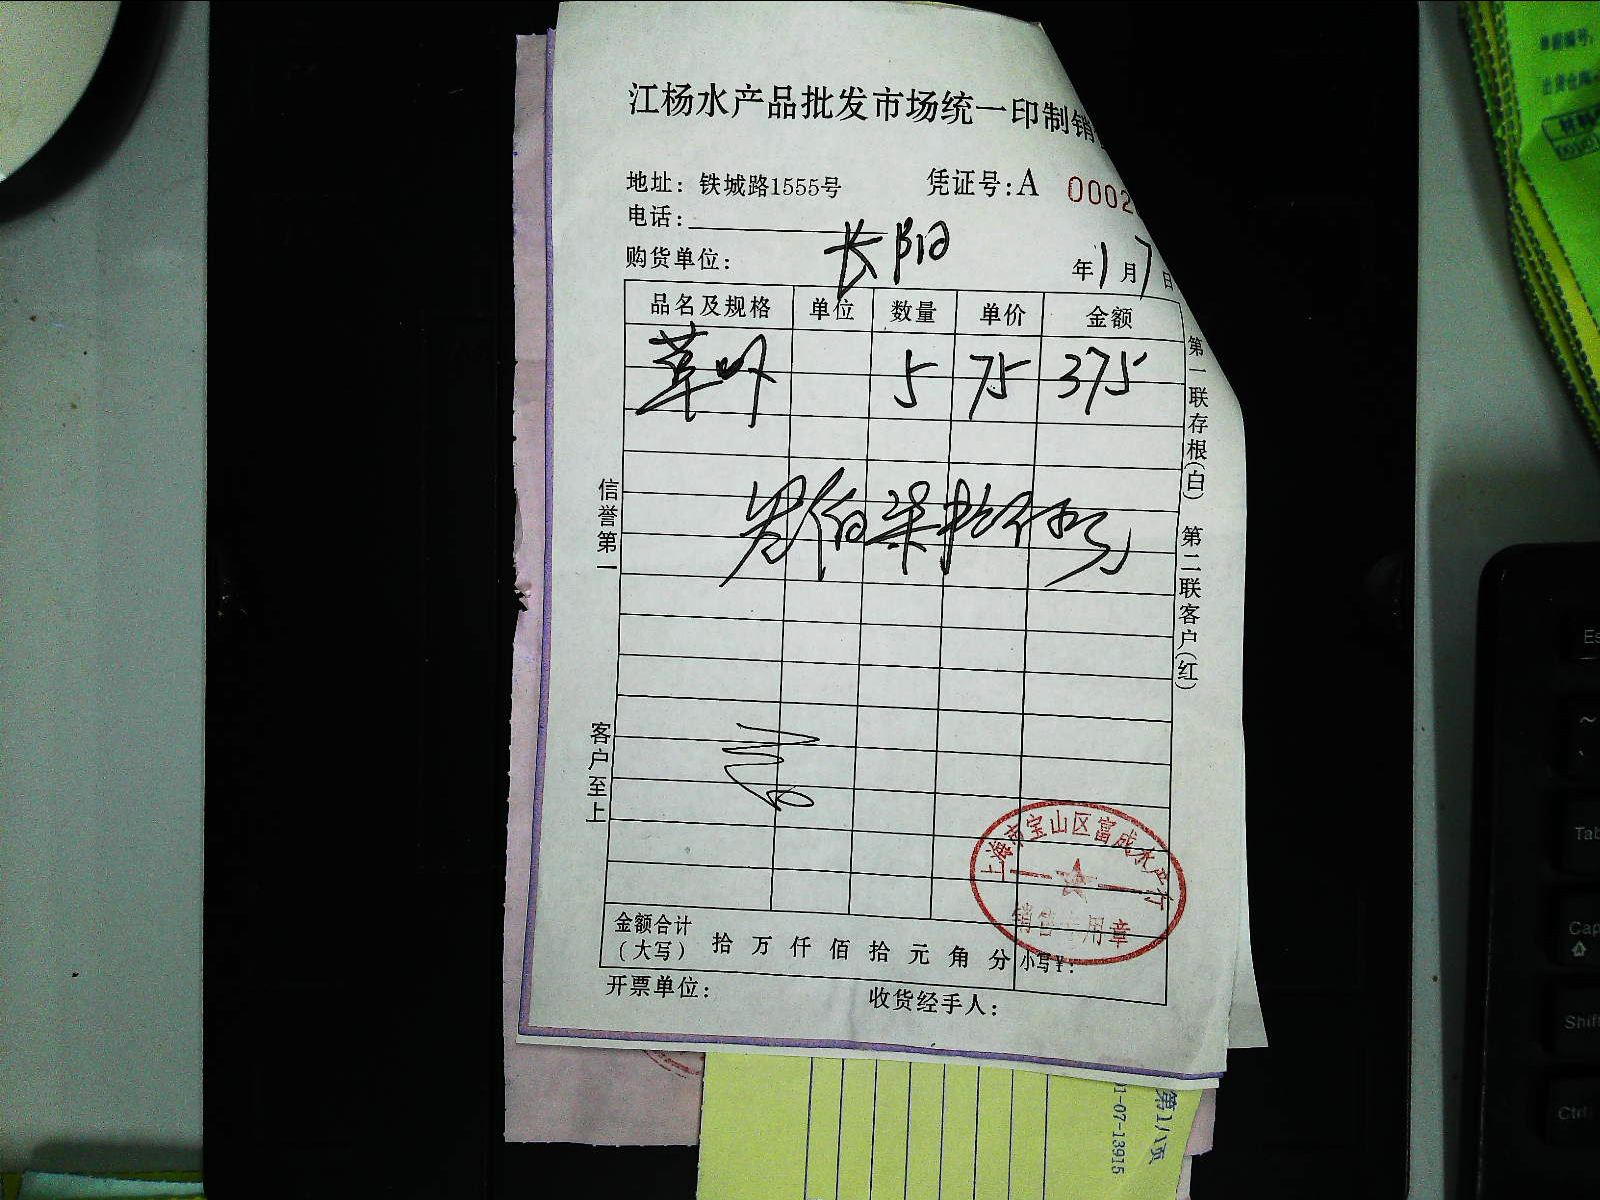 江杨水产品批发市场统一印制销
地址：铁城路1555号 凭证号：A 0002
电话：
购货单位： 长阳 年1月7日
品名及规格 单位 数量 单价 金额
草虾 5 75 375
叁佰柒拾伍元
信誉第一
客户至上
第一联存根（白） 第二联客户（红）
上海市宝山区富成水产行
销售专用章
金额合计（大写） 拾 万 仟 佰 拾 元 角 分 小写¥：
开票单位： 收货经手人：
第1/1页
1-07-13915
Es
~
Tab
Cap
Shift
Ctrl